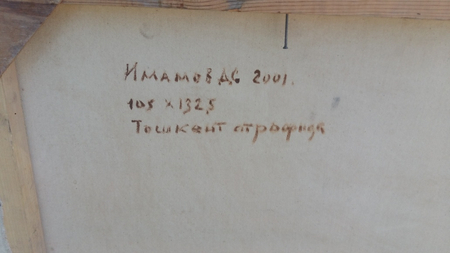 Имамов Дв 2001.
105 x 132,5
Тошкент атрофида